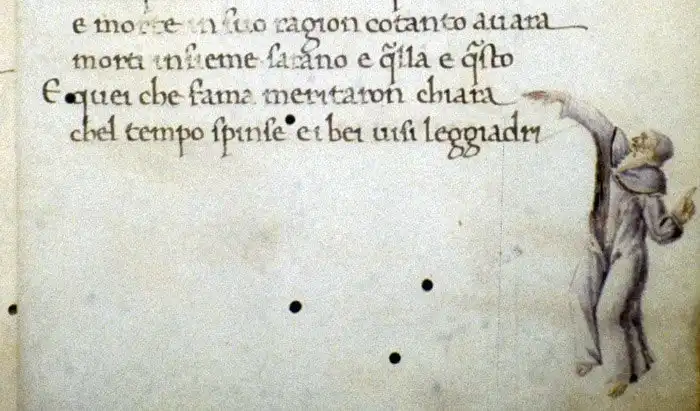 e morte in suo ragion cotanto auara
morti insieme sarano e q̃lla e q̃sto
E quei che fama meritaron chiara
chel tempo spinse ei bei uisi leggiadri